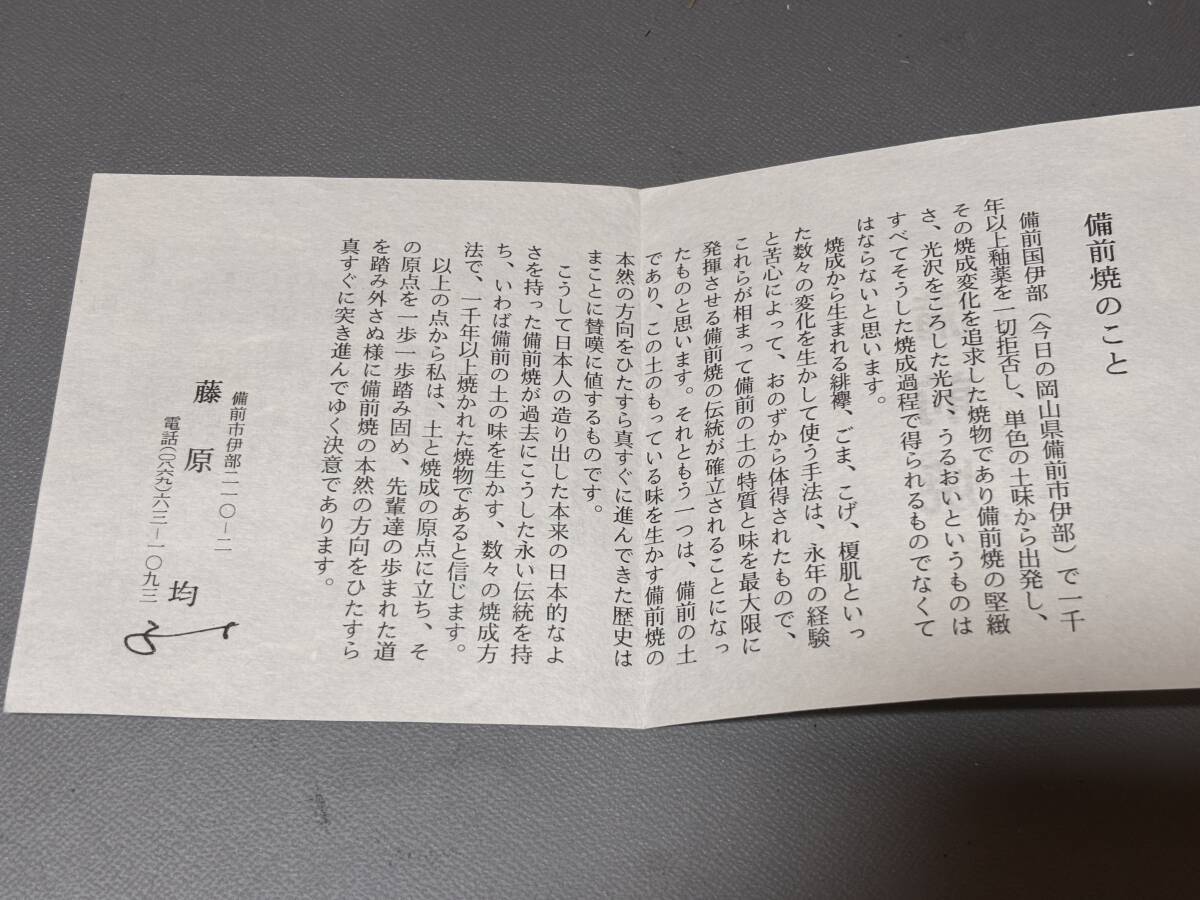 備前焼のこと
備前国伊部（今日の岡山県備前市伊部）で一千
年以上釉薬を一切拒否し、単色の土味から出発し、
その焼成変化を追求した焼物であり備前焼の堅緻
さ、光沢をころした光沢、うるおいというものは
すべてそうした焼成過程で得られるものでなくて
はならないと思います。
焼成から生まれる緋襷、ごま、こげ、榎肌といっ
た数々の変化を生かして使う手法は、永年の経験
と苦心によって、おのずから体得されたもので、
これらが相まって備前の土の特質と味を最大限に
発揮させる備前焼の伝統が確立されることになっ
たものと思います。それともう一つは、備前の土
であり、この土のもっている味を生かす備前焼の
本然の方向をひたすら真すぐに進んできた歴史は
まことに賛嘆に値するものです。
こうして日本人の造り出した本来の日本的なよ
さを持った備前焼が過去にこうした永い伝統を持
ち、いわば備前の土の味を生かす、数々の焼成方
法で、一千年以上焼かれた焼物であると信じます。
以上の点から私は、土と焼成の原点に立ち、そ
の原点を一歩一歩踏み固め、先輩達の歩まれた道
を踏み外さぬ様に備前焼の本然の方向をひたすら
真すぐに突き進んでゆく決意であります。
備前市伊部二一〇−二
藤原均
電話(〇八六九)六三−一〇九三